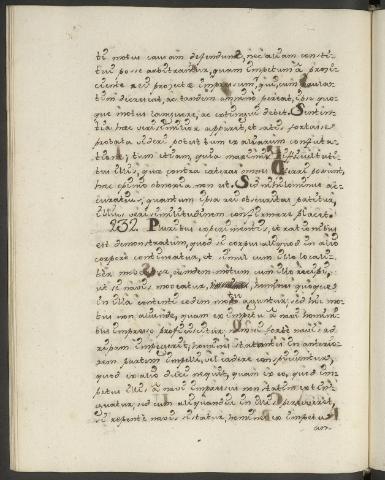 te motus causam defendunt, nec aliam consti-
tui posse arbitrantur, quam impetum a proji-
ciente rei projectæ impressum, qui, cum paula-
tim decrescat, ac tandem omnino pereat, ipse quo-
que motus languere, ac extingui debet. Senten-
tia hæc verisimilior apparet, et satis fortasse
probata videri potest tum ex aliarum confuta-
tione, tum etiam, quia maximæ difficultati-
bus illis, quæ contra cæteras moveri possunt,
hæc opinio obnoxia non est. Sed nihilominus ac-
curatius, quantum ipsa rei obscuritas patitur,
illius verisimilitudinem confirmare placet.
232. Pluribus experimentis, et rationibus
est demonstratum, quod si corpus aliquod in alio
corpore contineatur, et simul cum illo locali-
ter moveatur, eundem motum cum illo recipit,
ut si navis moveatur, homines quoque
in illa contenti eodem motu aguntur, sed hic mo-
tus non aliunde, quam ex impetu a navi homini-
bus impresso proficiscitur navis forte navis ad
ripam impegerit, homines statim in anterio-
rem partem impelli, vel cadere conspiciuntur,
quod ex alio dici nequit, quam ex eo, quod im-
petus illis a navi impressus non statim extin-
guatur, sed cum aliquandiu in illis perseveret,
si repente navis sistatur, homines ex impetu